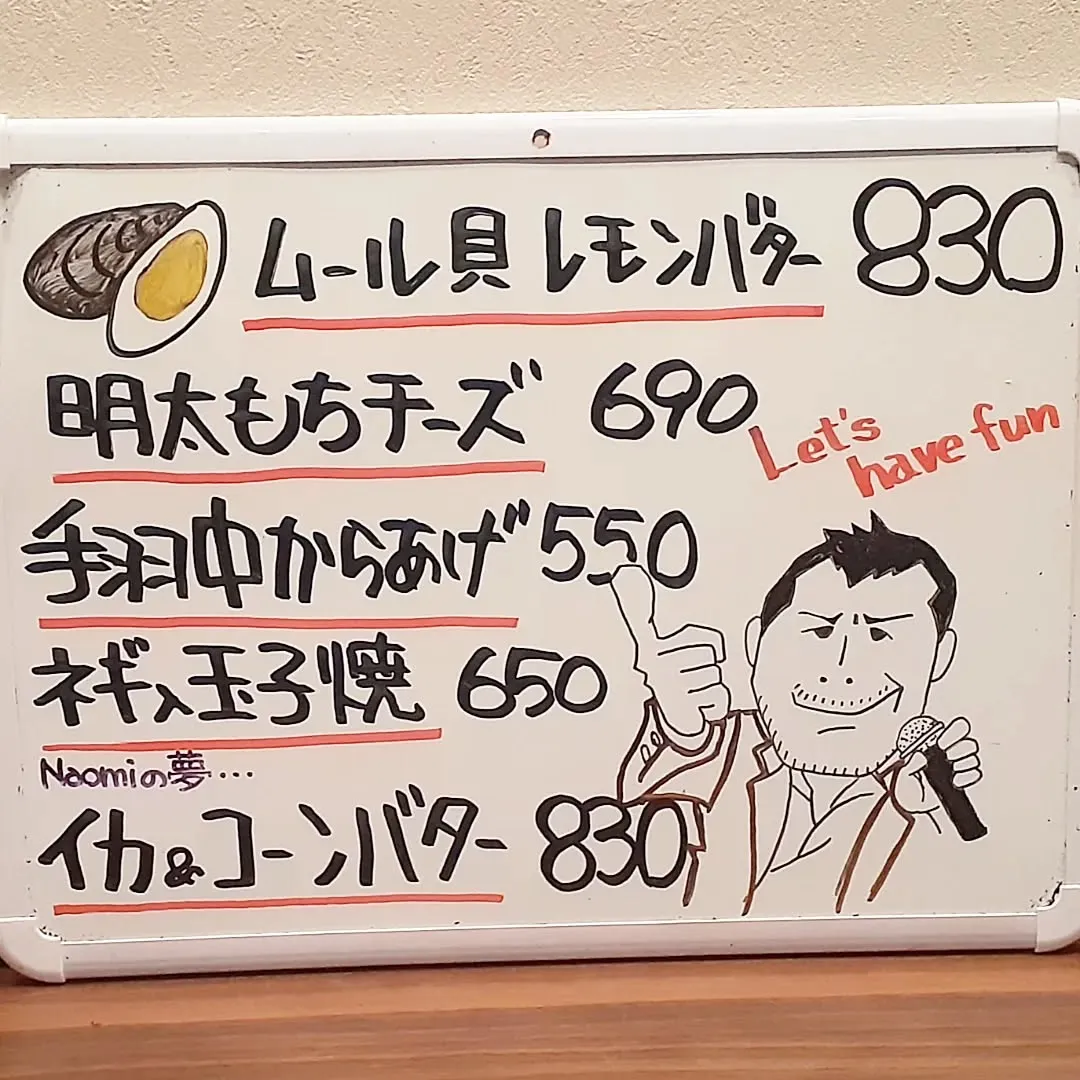 ムール貝 レモンバター 830
明太もちチーズ 690
Let's
have fun
手羽中からあげ 550
ネギ入玉子焼 650
Naomiの夢…
イカ&コーンバター 830